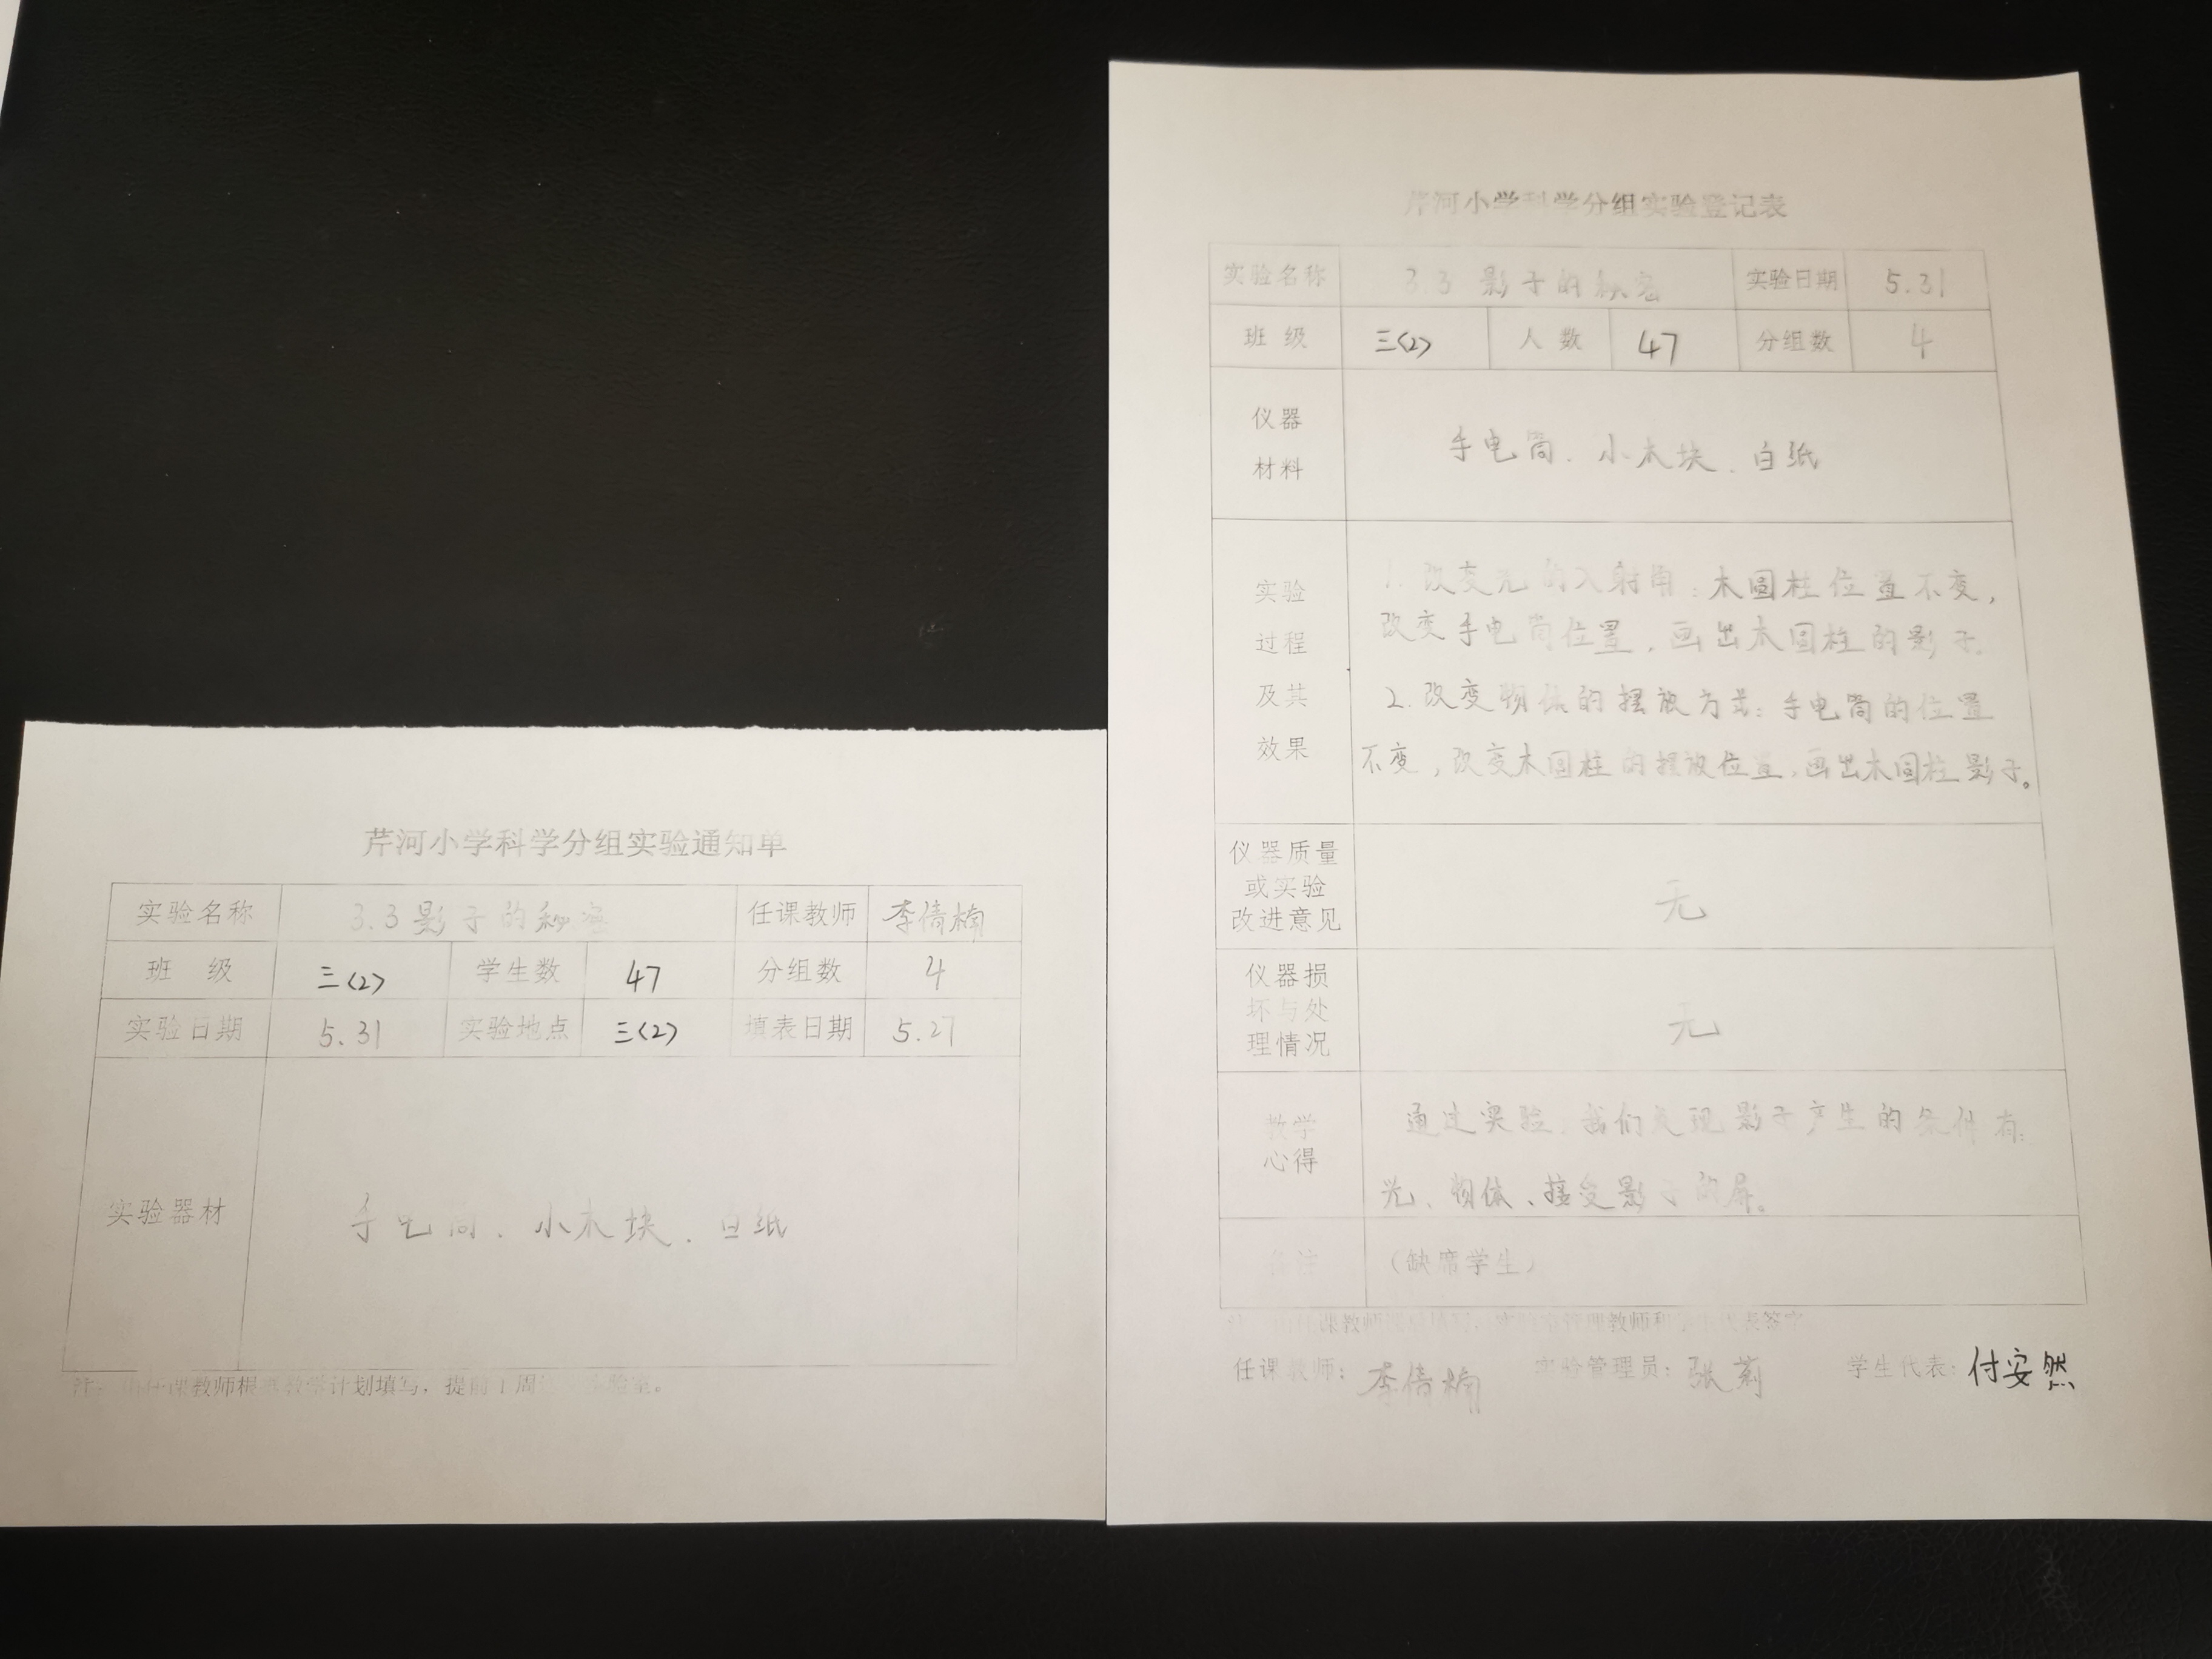 芹河小学科学分组实验通知单
实验名称 3.3 影子的秘密 任课教师 李倩楠
班 级 三(2) 学生数 47 分组数 4
实验日期 5.31 实验地点 三(2) 填表日期 5.27
实验器材 手电筒、小木块、白纸
课教师根 教学计划填写，提前1周 验室。
芹河小学科学分组实验登记表
实验名称 3.3 影子的秘密 实验日期 5.31
班 级 三(2) 人 数 47 分组数 4
仪器
材料
手电筒、小木块、白纸
实验
过程
及其
效果
1.改变光的入射角：木圆柱位置不变，
改变手电筒位置，画出木圆柱的影子。
2.改变物体的摆放方式：手电筒的位置
不变，改变木圆柱的摆放位置，画出木圆柱影子。
仪器质量
或实验
改进意见
无
仪器损
坏与处
理情况
无
教学
心得
通过实验，我们发现影子产生的条件有：
光、物体、接受影子的屏。
备注 （缺席学生）
课教师 管理教师和 表签字
任课教师：李倩楠 实验管理员：张莉 学生代表：付安然